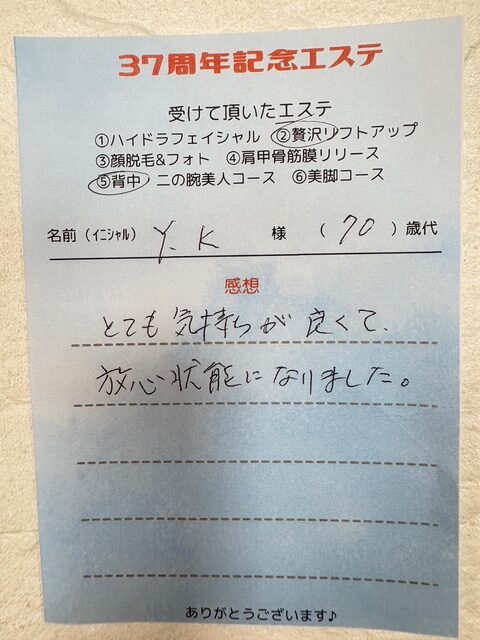 37周年記念エステ
受けて頂いたエステ
①ハイドラフェイシャル ②贅沢リフトアップ
③顔脱毛&フォト ④肩甲骨筋膜リリース
⑤背中・二の腕美人コース ⑥美脚コース
名前(イニシャル) Y. K 様 (70)歳代
感想
とても気持ちが良くて、
放心状態になりました。
ありがとうございます♪